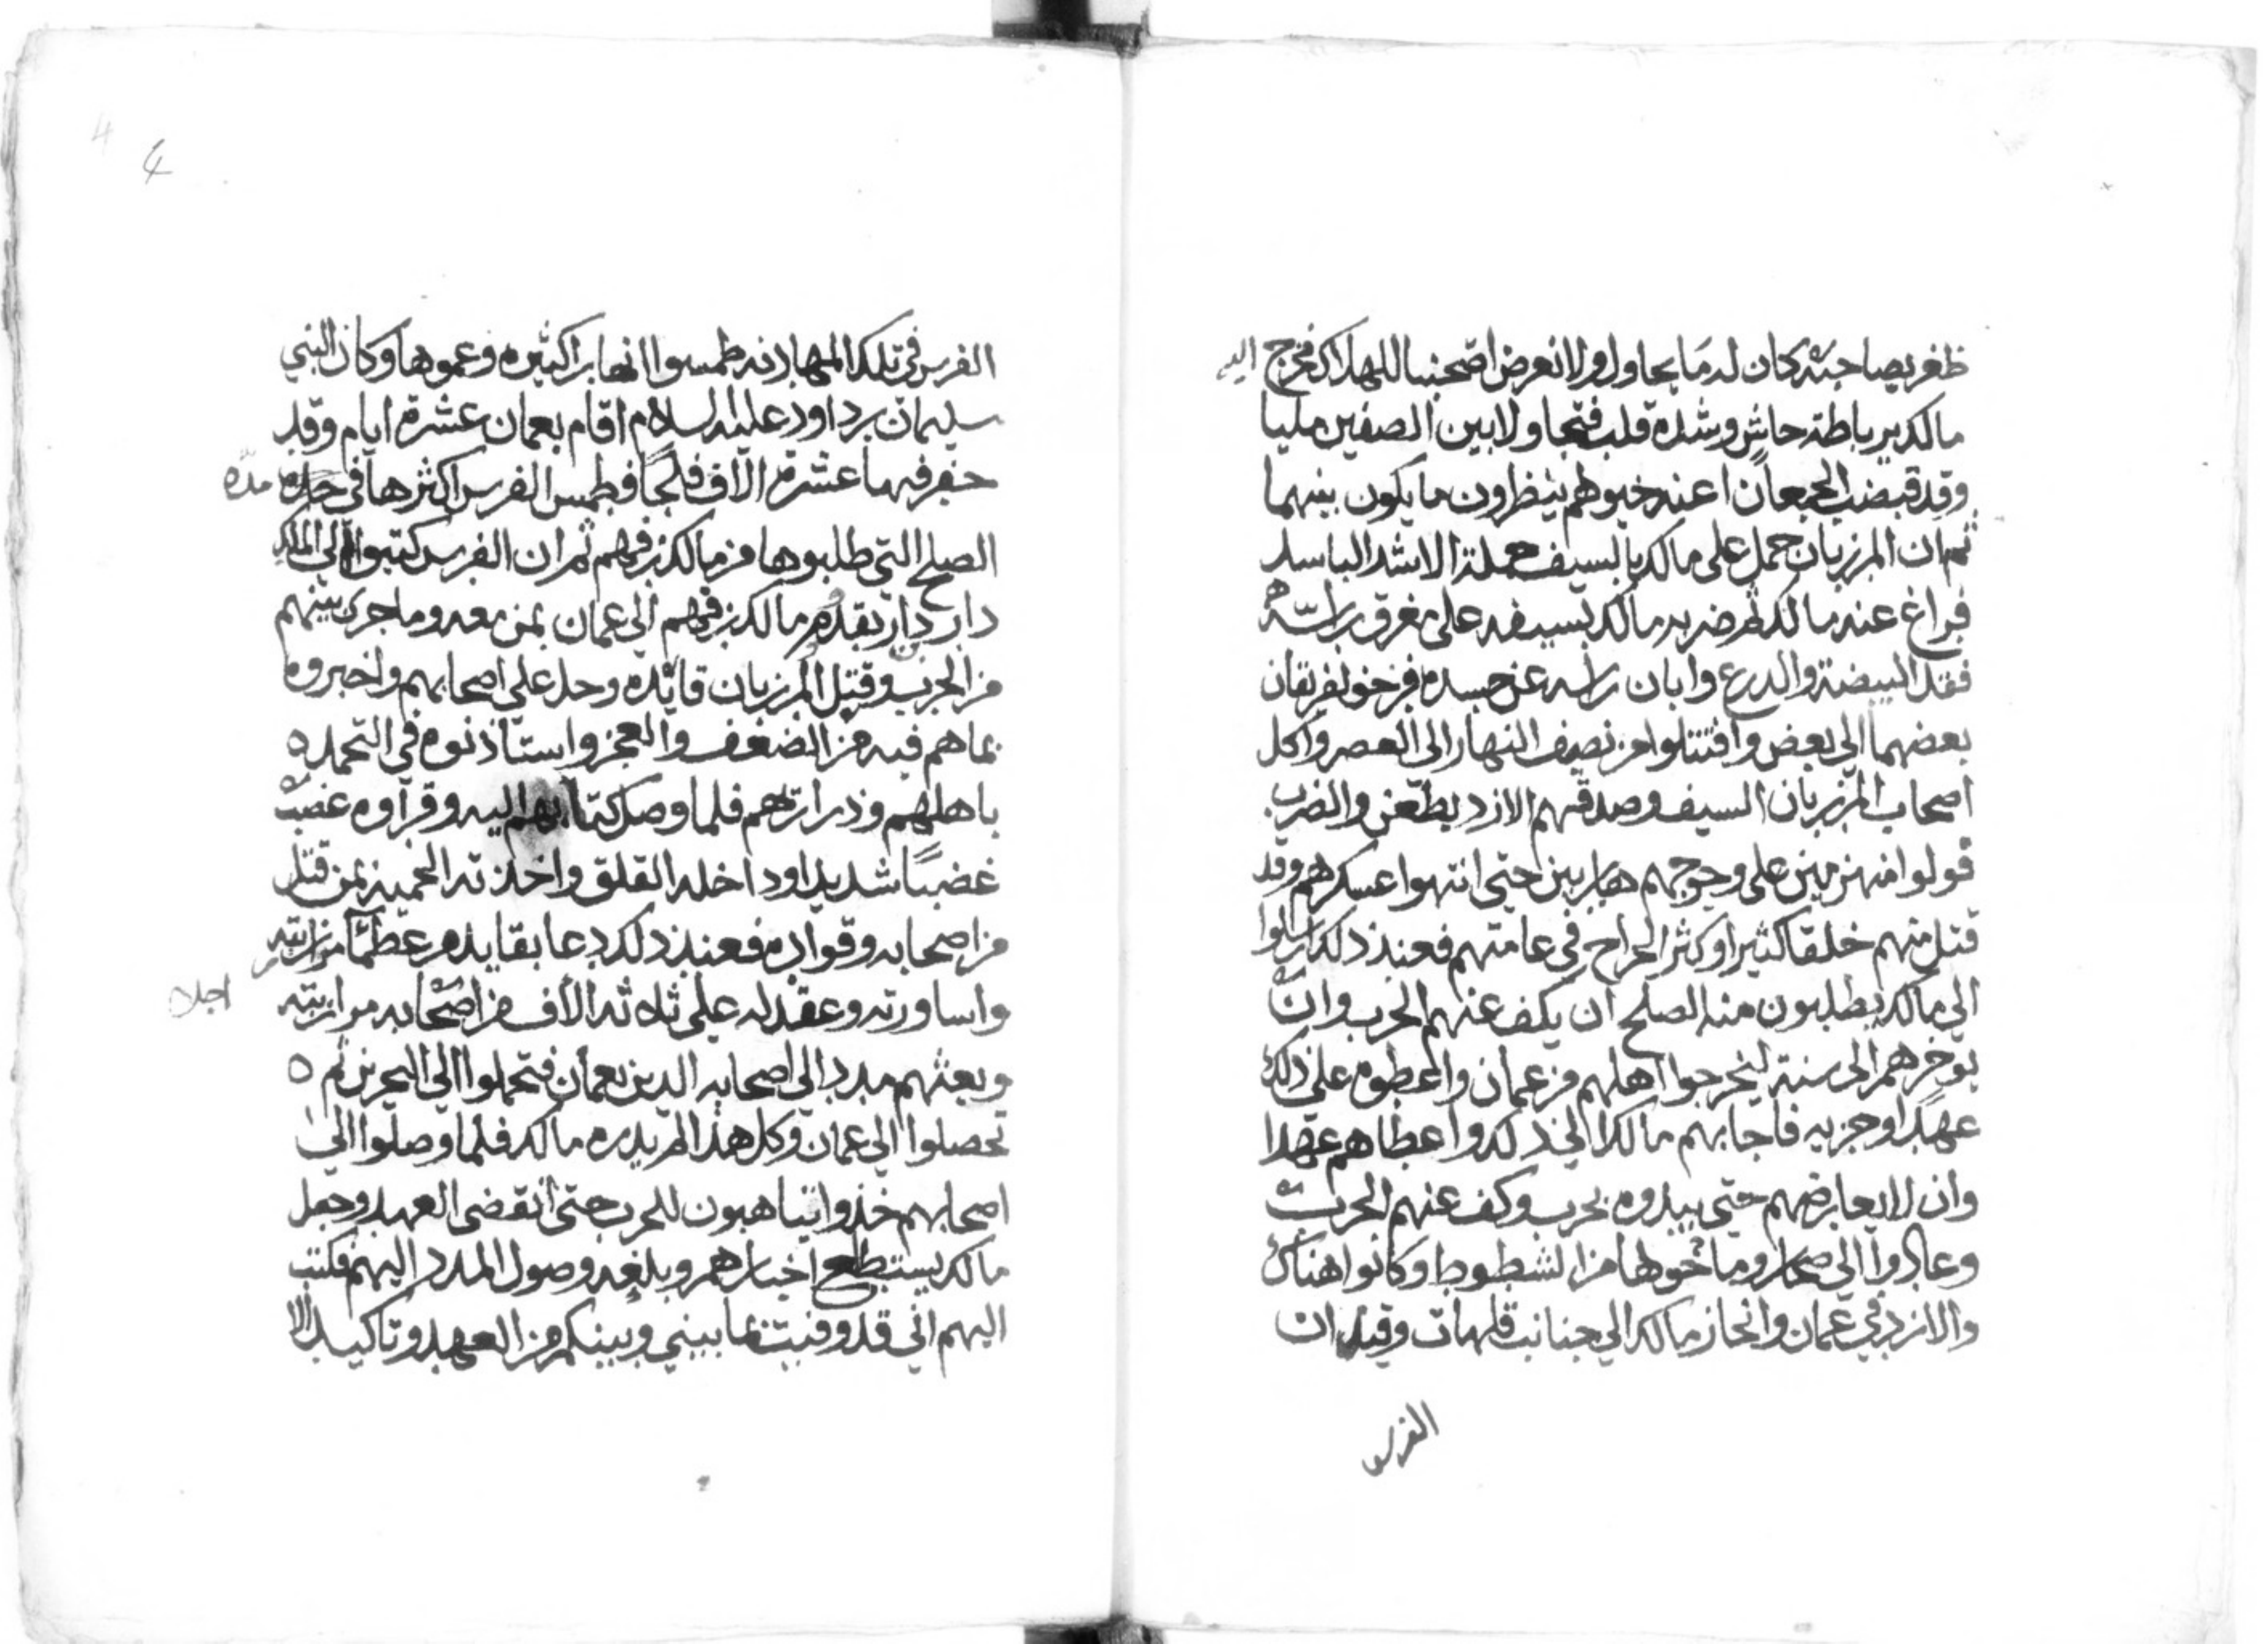 ظفر بصاحبه كان له ما يحاول ولا نعرض اصحابنا للهلاك فخرج اليه
مالك برباطة جاش وشدة قلب فتجاولا بين الصفين مليا
وقد قبضت الجمعان اعنه خيولهم ينظرون ما يكون بينهما
ثم ان المرزبان حمل على مالك بالسيف حملة الاسد الباسل
فراغ عنه مالك ثم ضربه مالك بسيفه على مفرق راسه
فقد البيضة والدرع وابان راسه عن جسده فزحف الفريقان
بعضهما الى بعض واقتتلوا من نصف النهار الى العصر واكل
اصحاب المرزبان السيف وصدقهم الازد بطعن والضرب
فولوا منهزمين على وجوجهم هاربين حتى انتهوا عسكرهم وقد
قتل منهم خلقا كثيرا وكثر الجراح في عامتهم فعند ذلك ارسلوا
الى مالك يطلبون منه الصلح ان يكف عنهم الحرب وان
يوخرهم الى سنة ليخرجوا اهلهم من عمان واعطوه على ذلك
عهدا وجزيه فاجابهم مالك الى ذلك واعطاهم عهدا
وان لا يعارضهم حتى يبدوه بحرب وكف عنهم الحرب
وعادوا الى صحار وما حولها من الشطوط وكانوا هناك
والازد في عمان وانحاز مالك الى جنانب قلهات وقيل ان
الفرس
4 4
الفرس في تلك المهادنه طمسوا انهارا كثيره وعموها وكان النبي
سليمان بن داود عليه السلام اقام بعمان عشرة ايام وقد
حفر فيها عشرة الاف فلجا فطمس الفرس اكثرها في مده
الصلح التي طلبوها من مالك بن فهم ثم ان الفرس كتبوا الى الملك
دار دار بقدوم مالك بن فهم الى عمان بمن معه وما جرى بينهم
من الحرب وقتل المرزبان قائده وحل على اصحابهم واخبروه
بما هم فيه من الضعف والعجز واستاذنوه في التحمل ه
باهلهم وذراريهم فلما وصل كتابهم اليه وقراوه غضب
غضبا شديدا وداخله القلق واخذته الحميه بمن قتل
من اصحابه وقواده فعند ذلك دعا بقايد من عظما مرازبته
واساورته وعقد له على ثلاثه الاف من اصحابه مرازبته اجلا
وبعثهم مددا الى اصحابه الذين بعمان فتحملوا الى البحرين ثم ه
تحصلوا الى عمان وكل هذا لم يدره مالك فلما وصلوا الى
اصحابهم خذوا يتاهبون للحرب حتى انقضى العهد وجعل
مالك يستطلع اخبارهم وبلغه وصول المدد اليهم فكتب
اليهم اني قد وفيت بما بيني وبينكم من العهد وتاكيد الا